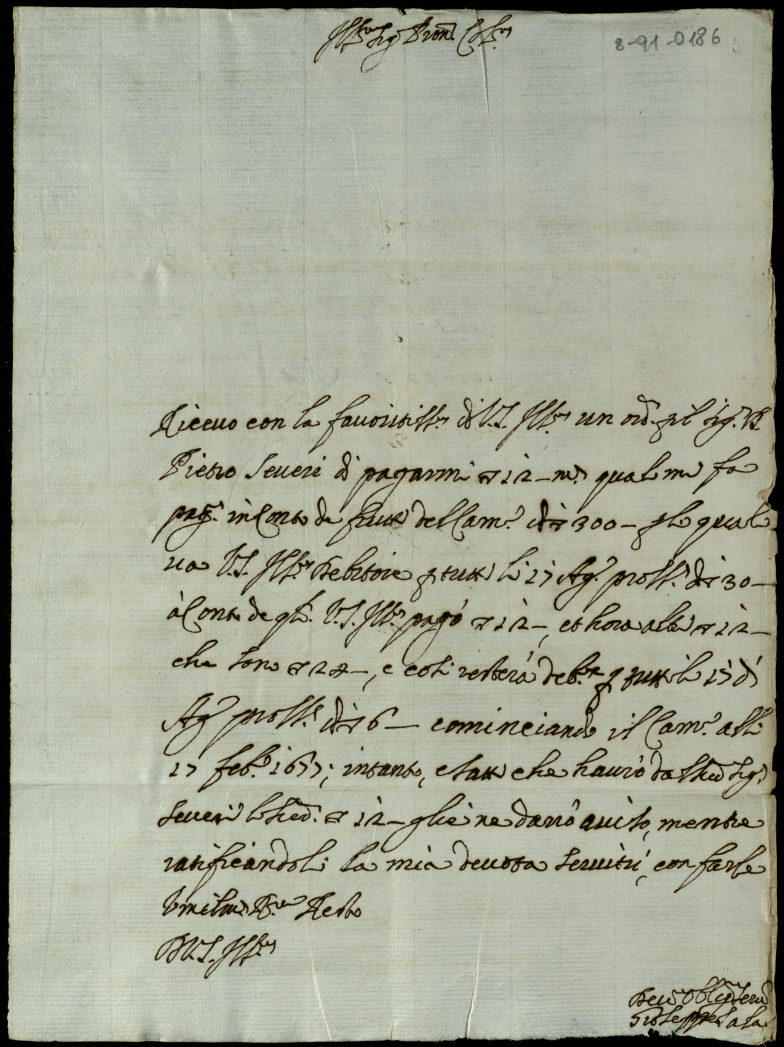 Ill.mo Sig. Pron. Col.mo
8-91-0186
Riceuo con la fauoritiss.a di V.S. Ill.ma un ord. p il Sig. D.
Pietro Seueri di pagarmi 12 – qual me fa
pag. in Conto de frutti del Cam.o di 300 – p le quali
ua V.S. Ill.ma Debitore p tutti li 17 Ag.o pross.o di 30 –
à Conto de q.li V.S. Ill.ma pagó 12 –, et hora altri 12 –
che sono 24 –, e così resterà deb.re p tutti li 17 di
Ag.o pross.o di 6 – cominciando il Cam.o alli
17 feb.o 1677; intanto, e fatto che hauró da Sud.o Sig.
Seueri le Sud. 12 – gliè ne darró auiso, mentre
ratificandoli la mia deuota seruitú, con farle
Resto
D V.S. Ill.ma
Deu.mo Oblig.mo Seru.
Gioseppe Sala